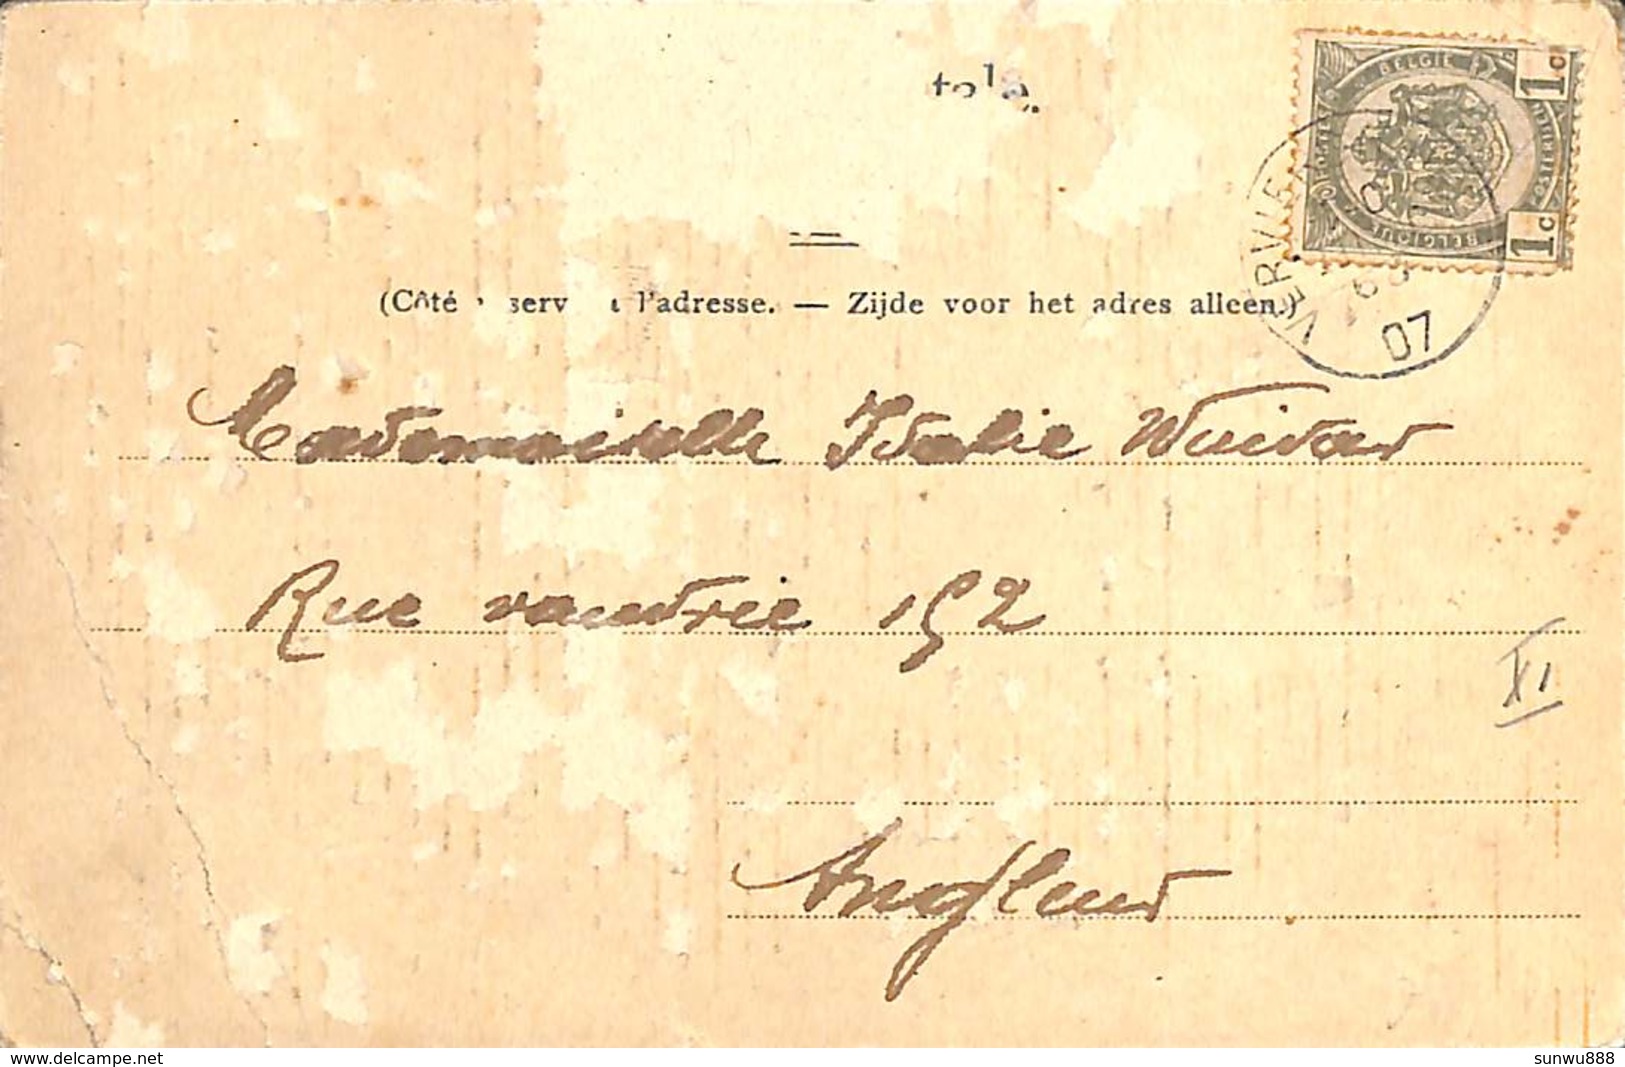 (Côté serv l'adresse. — Zijde voor het adres alleen.)
1c BELGIE
BELGIQUE 1c
VERVIE
07
Mademoiselle Idalie Wuidar
Rue vaudrée 152
XI
Angleur
www.delcampe.net
sunwu888